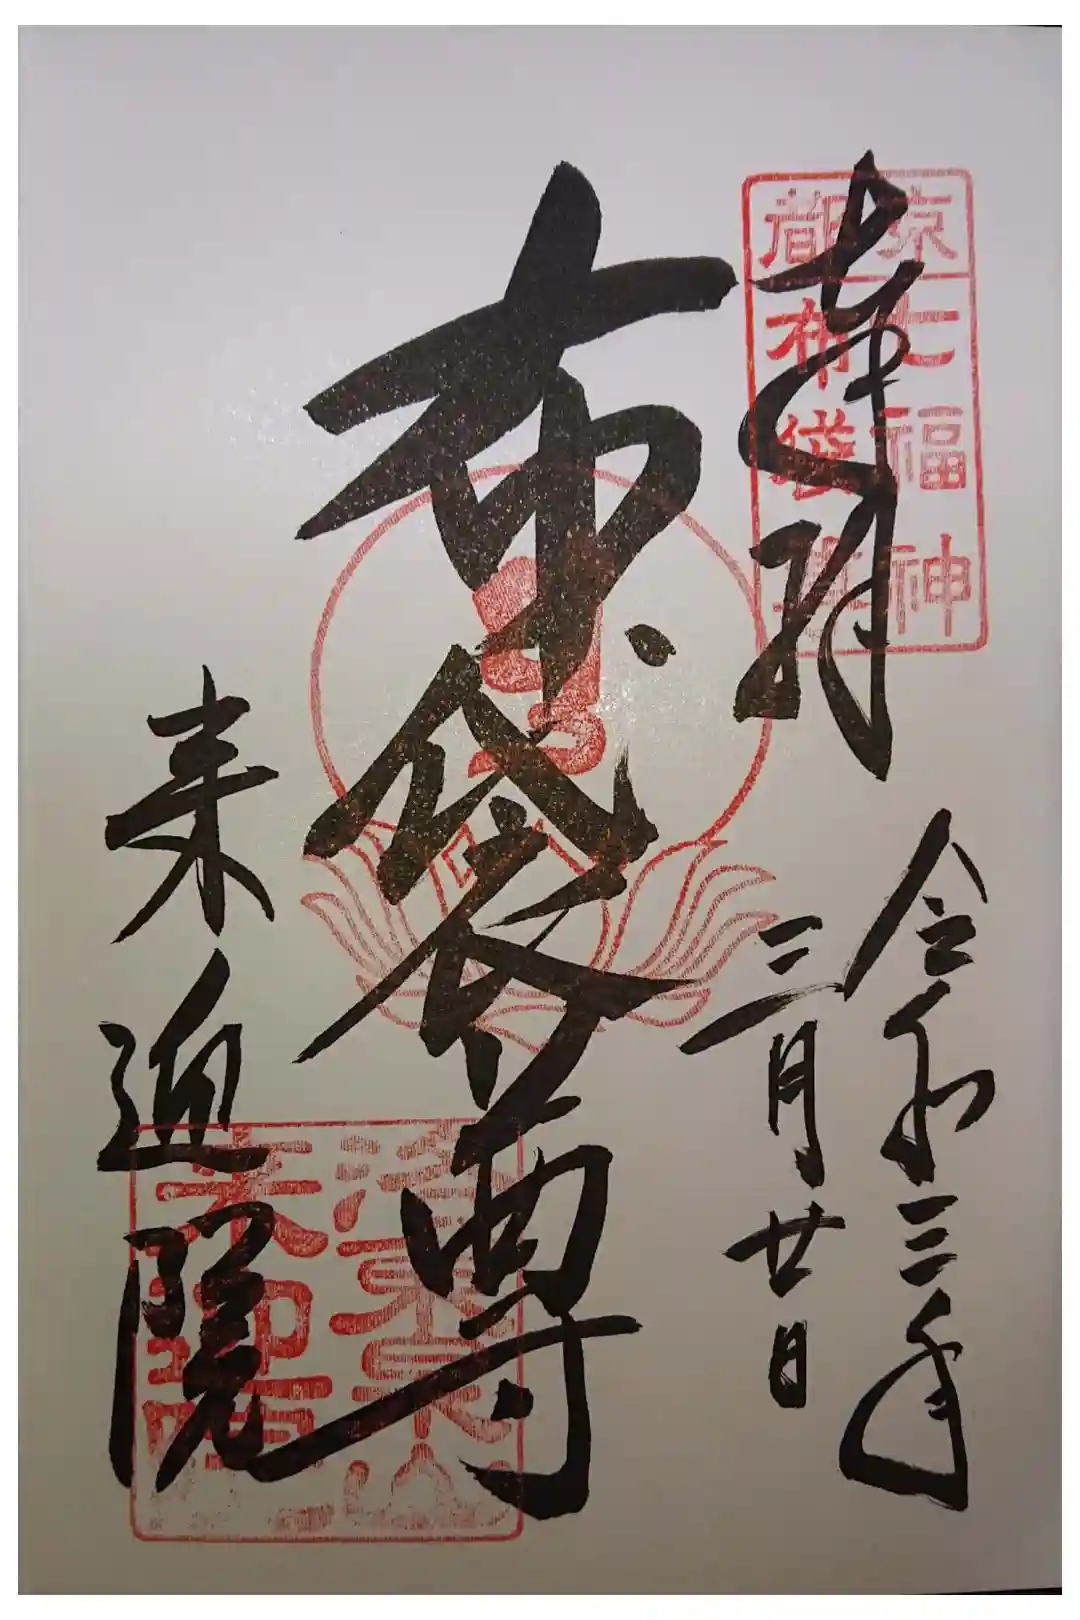 奉拝
京都
七福神
布袋尊
令和三年
二月廿日
布袋尊
来迎院